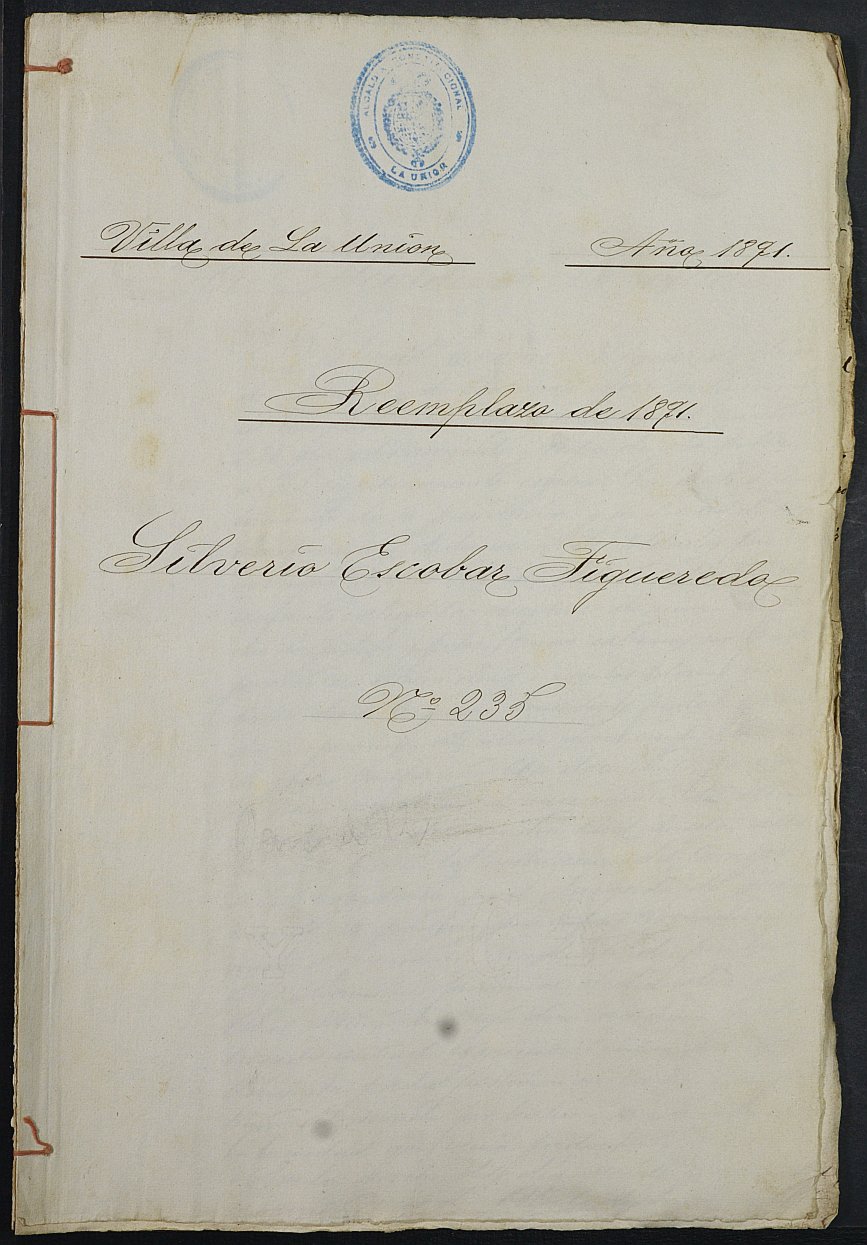 ALCALDIA CONSTITUCIONAL
LA UNION
Villa de La Union Año 1891.
Reemplazo de 1891.
Silverio Escobar Figueredo
Nº 235